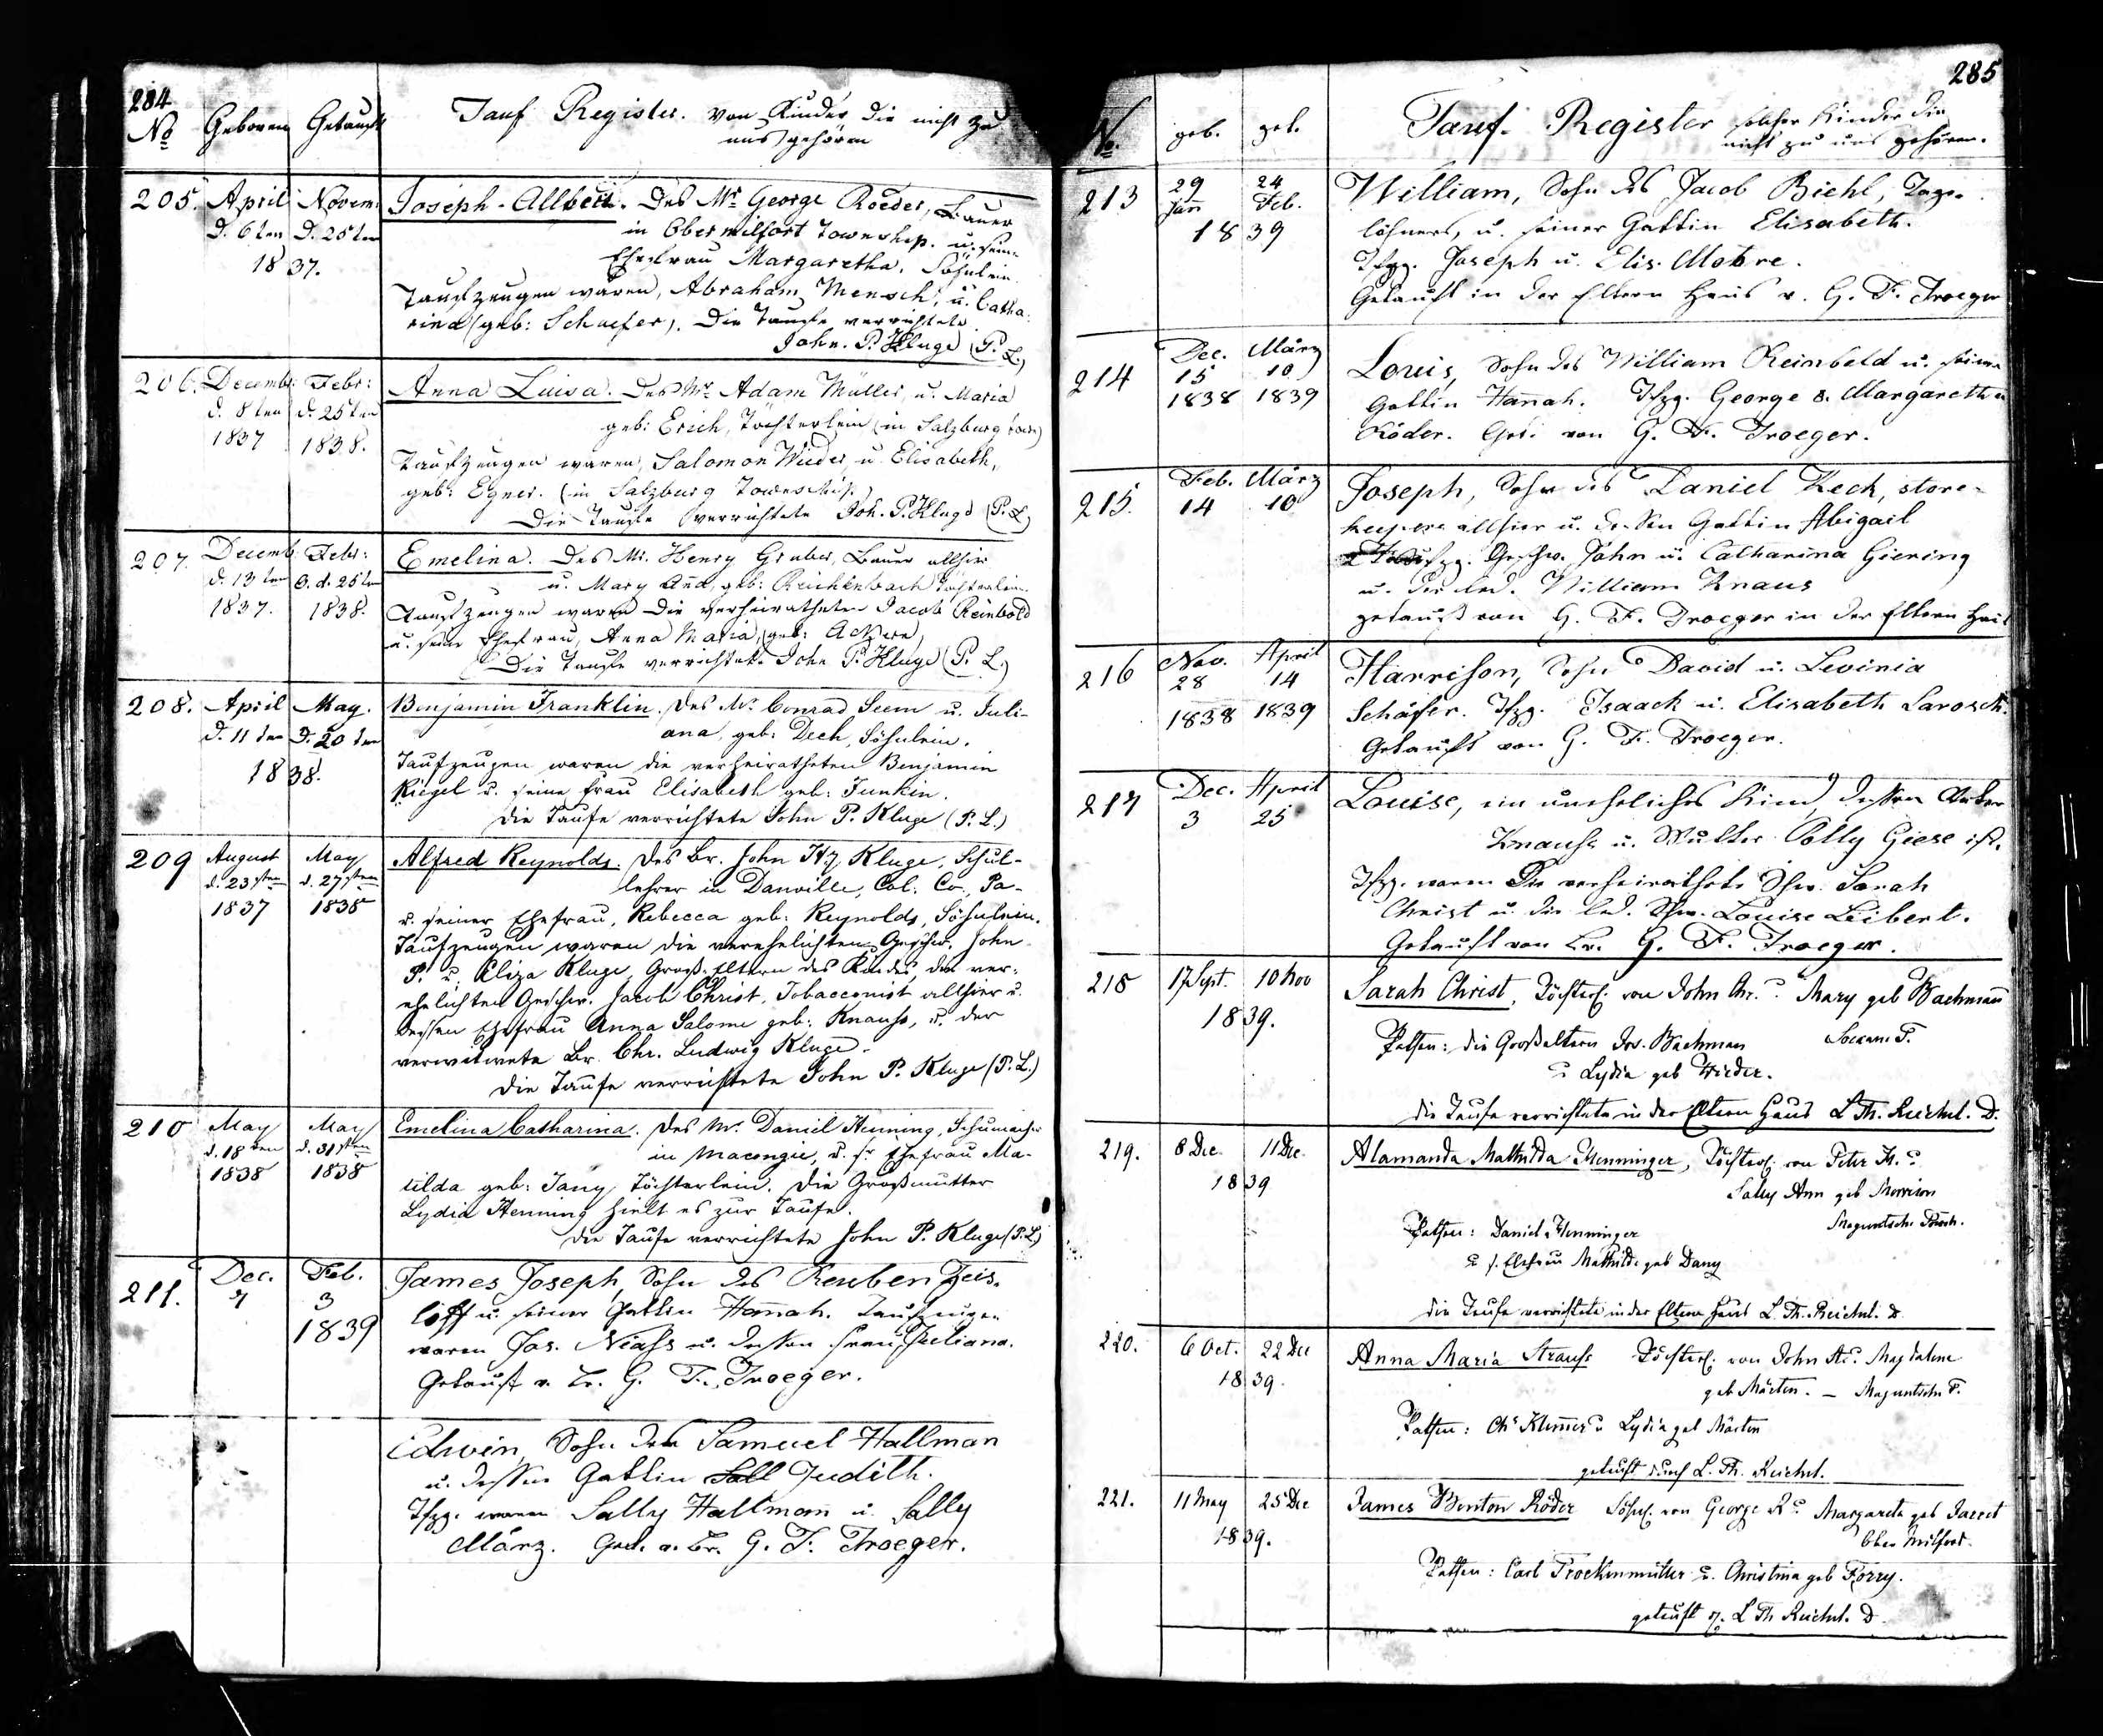 284
No Geboren Getauft Tauf Register. von Kinder die nicht zu
uns gehören
205. April Novem: Joseph-Allbert. Des Mr George Roeder, Bauer
d. 6ten d. 25ten in Obermilfort Township. u. seine
1837. Ehefrau Margaretha, Söhnlein.
Taufzeugen waren, Abraham Mensch, u. Catha:
rina (geb: Schaefer). Die Taufe verrichtete
John. P. Kluge (P. L.)
206. Decemb: Febr: Anna Luisa. Des Mr Adam Müller, u. Maria
d. 8ten d. 25ten geb: Erich, Töchterlein (in Salzburg town)
1837 1838. Taufzeugen waren, Salomon Wieder, u. Elisabeth,
geb: Egner. (in Salzburg Township.)
Die Taufe verrichtete Joh. P. Kluge (P. L.)
207. Decemb Febr: Emelina. Des Mr. Henry Gruber, Bauer allhier
d. 13ten d. 25ten u. Mary Ana, geb: Reichenbach Töchterlein.
1837. 1838. Taufzeugen waren die verheiratheten Jacob Reinbold
u. seine Ehefrau, Anna Maria, (geb:
Die Taufe verrichtete John P. Kluge (P. L.)
208. April May. Benjamin Franklin. Des Mr. Conrad Seem u. Juli-
d. 11ten d. 20ten ana, geb: Dech, Söhnlein.
1838. Taufzeugen waren die verheiratheten Benjamin
Riegel u. seine Frau Elisabeth geb: Junkin.
Die Taufe verrichtete John P. Kluge (P. L.)
209 August May Alfred Reynolds. Des Br. John Hy Kluge, Schul-
d. 23sten d. 27sten lehrer in Danville, Col. Co., Pa-
1837 1838 u. seiner Ehefrau, Rebecca geb: Reynolds, Söhnlein.
Taufzeugen waren die verehelichten Geschw. John
P. u. Eliza Kluge, Groß-Eltern des Kindes, die ver:
ehelichten Geschw. Jacob Christ, Tobacconist allhier u.
dessen Ehefrau Anna Salome geb: Knauss, u. der
verwitwete Br. Chr. Ludwig Kluge.
Die Taufe verrichtete John P. Kluge (P. L.)
210 May May Emelina Catharina. Des Mr. Daniel Henning, Schumacher
d. 18ten d. 31sten in Macongie, u. sr Ehefrau Ma-
1838 1838 tilda geb: Jany Töchterlein. Die Großmutter
Lydia Henning hielt es zur Taufe.
Die Taufe verrichtete John P. Kluge (P. L.)
211. Dec. Feb. James Joseph, Sohn des Reuben Zeis-
7 3 loff u. seiner Gattin Hannah. Taufzeugen
1839 waren Jos. Niass u. dessen Frau Juliana.
Getauft v. Br. G. F. Troeger.
Edwin, Sohn des Samuel Hallman
u. dessen Gattin Judith.
Tfzg. waren Sally Hallman u. Sally
März. Get. v. Br. G. F. Troeger.
285
No. geb. get. Tauf. Register solcher Kinder die
nicht zu uns gehören.
213 29 24 William, Sohn des Jacob Biehl, Tage-
Jan Feb. löhners, u. seiner Gattin Elisabeth.
1839 Tfzg. Joseph u. Elis. Mohre.
Getauft in der Eltern Haus v. G. F. Troeger
214 Dec. März Louis, Sohn des William Reinbeld u. seiner
15 10 Gattin Hannah. Tfzg. George & Margareth
1838 1839 Röder. Get. von G. F. Troeger.
215. Feb. März Joseph, Sohn des Daniel Keck, store-
14 10 keepers allhier u. dessen Gattin Abigail
Tfzg. Geschw. John u. Catharina Giering
u. der led. William Knaus
getauft von G. F. Troeger in der Eltern Haus
216 Nov. April Harrison, Sohn David u. Levinia
28 14 Schäfer. Tfzg. Isaack u. Elisabeth Larosch.
1838 1839 Getauft von G. F. Troeger.
217 Dec. April Louise, ein uneheliches Kind, dessen Vater
3 25 Knauss u. Mutter Polly Giese ist.
Tfzg. waren Die verheirathete Schw. Sarah
Christ u. die led. Schw. Louise Leibert.
Getauft von Br. G. F. Troeger.
218 17 Sept. 10 Nov Sarah Christ, Töchterl. von John Chr. u. Mary geb Bachman
1839. Pathen: die Großeltern Jos. Bachman
u Lydia geb Wieder.
die Taufe verrichtete in der Eltern Haus L. Th. Reichel. D.
219. 8 Dec. 11 Dec. Alamanda Mathilda Henninger, Töchterl. von Peter H. u
1839 Sally Ann geb Morrison
Pathen: Daniel Henninger
u s. Ehefrau Mathilde geb Dany
die Taufe verrichtete in der Eltern Haus L. Th. Reichel. D.
220. 6 Oct. 22 Dec Anna Maria Strauss Töchterl. von John St. u. Magdalene
1839. geb Märten. –
Pathen: Chr Klemmer u Lydia geb Märten
getauft durch L. Th. Reichel.
221. 11 May 25 Dec James Benton Röder Söhnl. von George R. u Margareta geb Jarret
1839. Ober Milford.
Pathen: Carl Trockenmüller u. Christina geb Förry.
getauft v. L Th Reichel. D